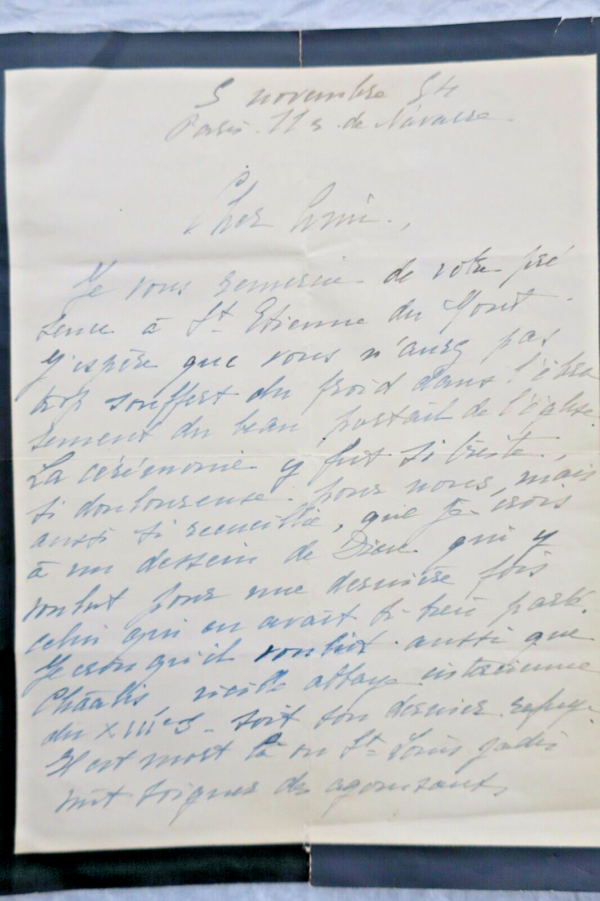 5 novembre 54
Paris. 11 r. de Navarre
Cher Ami,
Je vous remercie de votre pré
sence à St Etienne du Mont.
J'espère que vous n'aurez pas
trop souffert du froid dans l'ébra
sement du beau portail de l'église.
La cérémonie y fut si triste,
si douloureuse pour nous, mais
aussi si recueillie, que je crois
à un dessein de Dieu qui y
voulut pour une dernière fois
celui qui en avait si bien parlé.
Je crois qu'il voulut aussi que
Châalis, vieille abbaye cistercienne
du XIIIe S. soit son dernier refuge.
Il est mort là où St Louis jadis
vint soigner des agonisants,